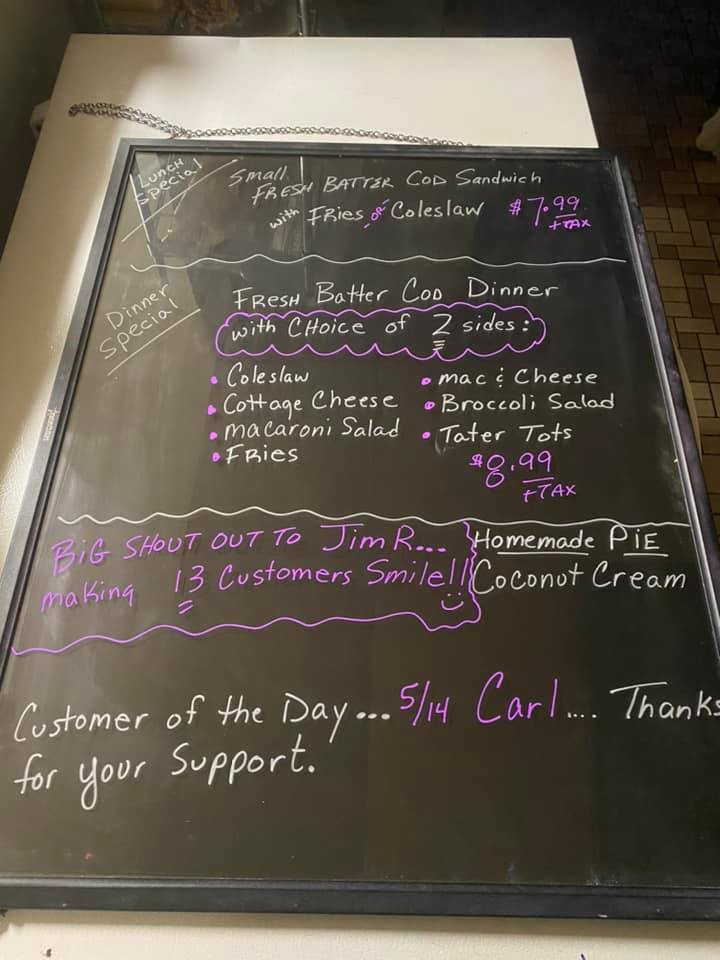 Lunch Special
Small
FRESH BATTER COD Sandwich
with FRies -OR- Coleslaw $7.99
+TAX
Dinner Special
FRESH Batter COD Dinner
with CHoice of 2 sides:
• Coleslaw
• Cottage Cheese
• macaroni Salad
• FRies
• mac & Cheese
• Broccoli Salad
• Tater Tots
$8.99
+TAX
BiG SHOUT OUT TO Jim R...
making 13 Customers Smile!!
Homemade PIE
Coconut Cream
Customer of the Day... 5/14 Carl.... Thanks
for your Support.